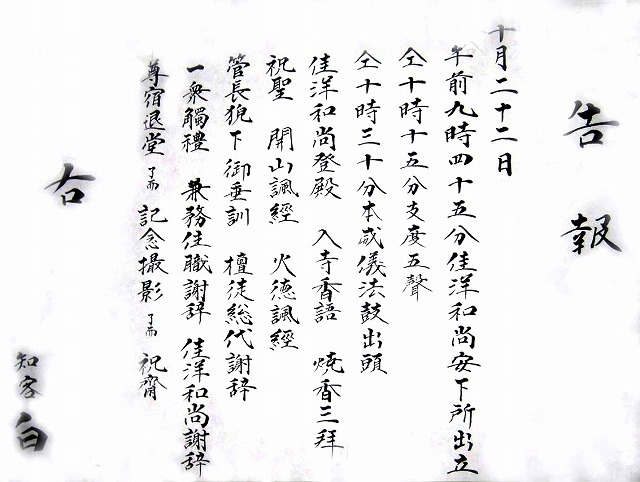 告報
十月二十二日
午前九時四十五分佳洋和尚安下所出立
仝十時十五分支度五聲
仝十時三十分本威儀法鼓出頭
佳洋和尚登殿 入寺香語 燒香三拜
祝聖 開山諷經 火德諷經
管長猊下御垂訓 檀徒総代謝辞
一衆觸禮 兼務住職謝辞 佳洋和尚謝辞
尊宿退堂 了而 記念撮影 了而 祝齋
右
知客白